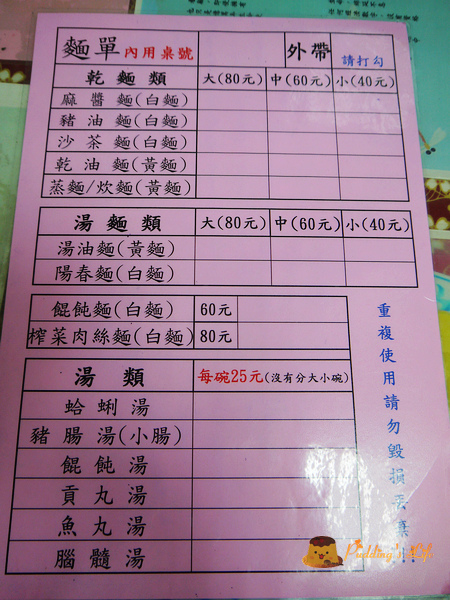 麵單 內用桌號 外帶 請打勾
乾麵類 大(80元) 中(60元) 小(40元)
麻醬麵(白麵)
豬油麵(白麵)
沙茶麵(白麵)
乾油麵(黃麵)
蒸麵/炊麵(黃麵)
湯麵類 大(80元) 中(60元) 小(40元)
湯油麵(黃麵)
陽春麵(白麵)
餛飩麵(白麵) 60元
榨菜肉絲麵(白麵) 80元
湯類 每碗25元(沒有分大小碗)
蛤蜊湯
豬腸湯(小腸)
餛飩湯
貢丸湯
魚丸湯
腦髓湯
重複使用請勿毀損丟棄!!
Pudding's Life